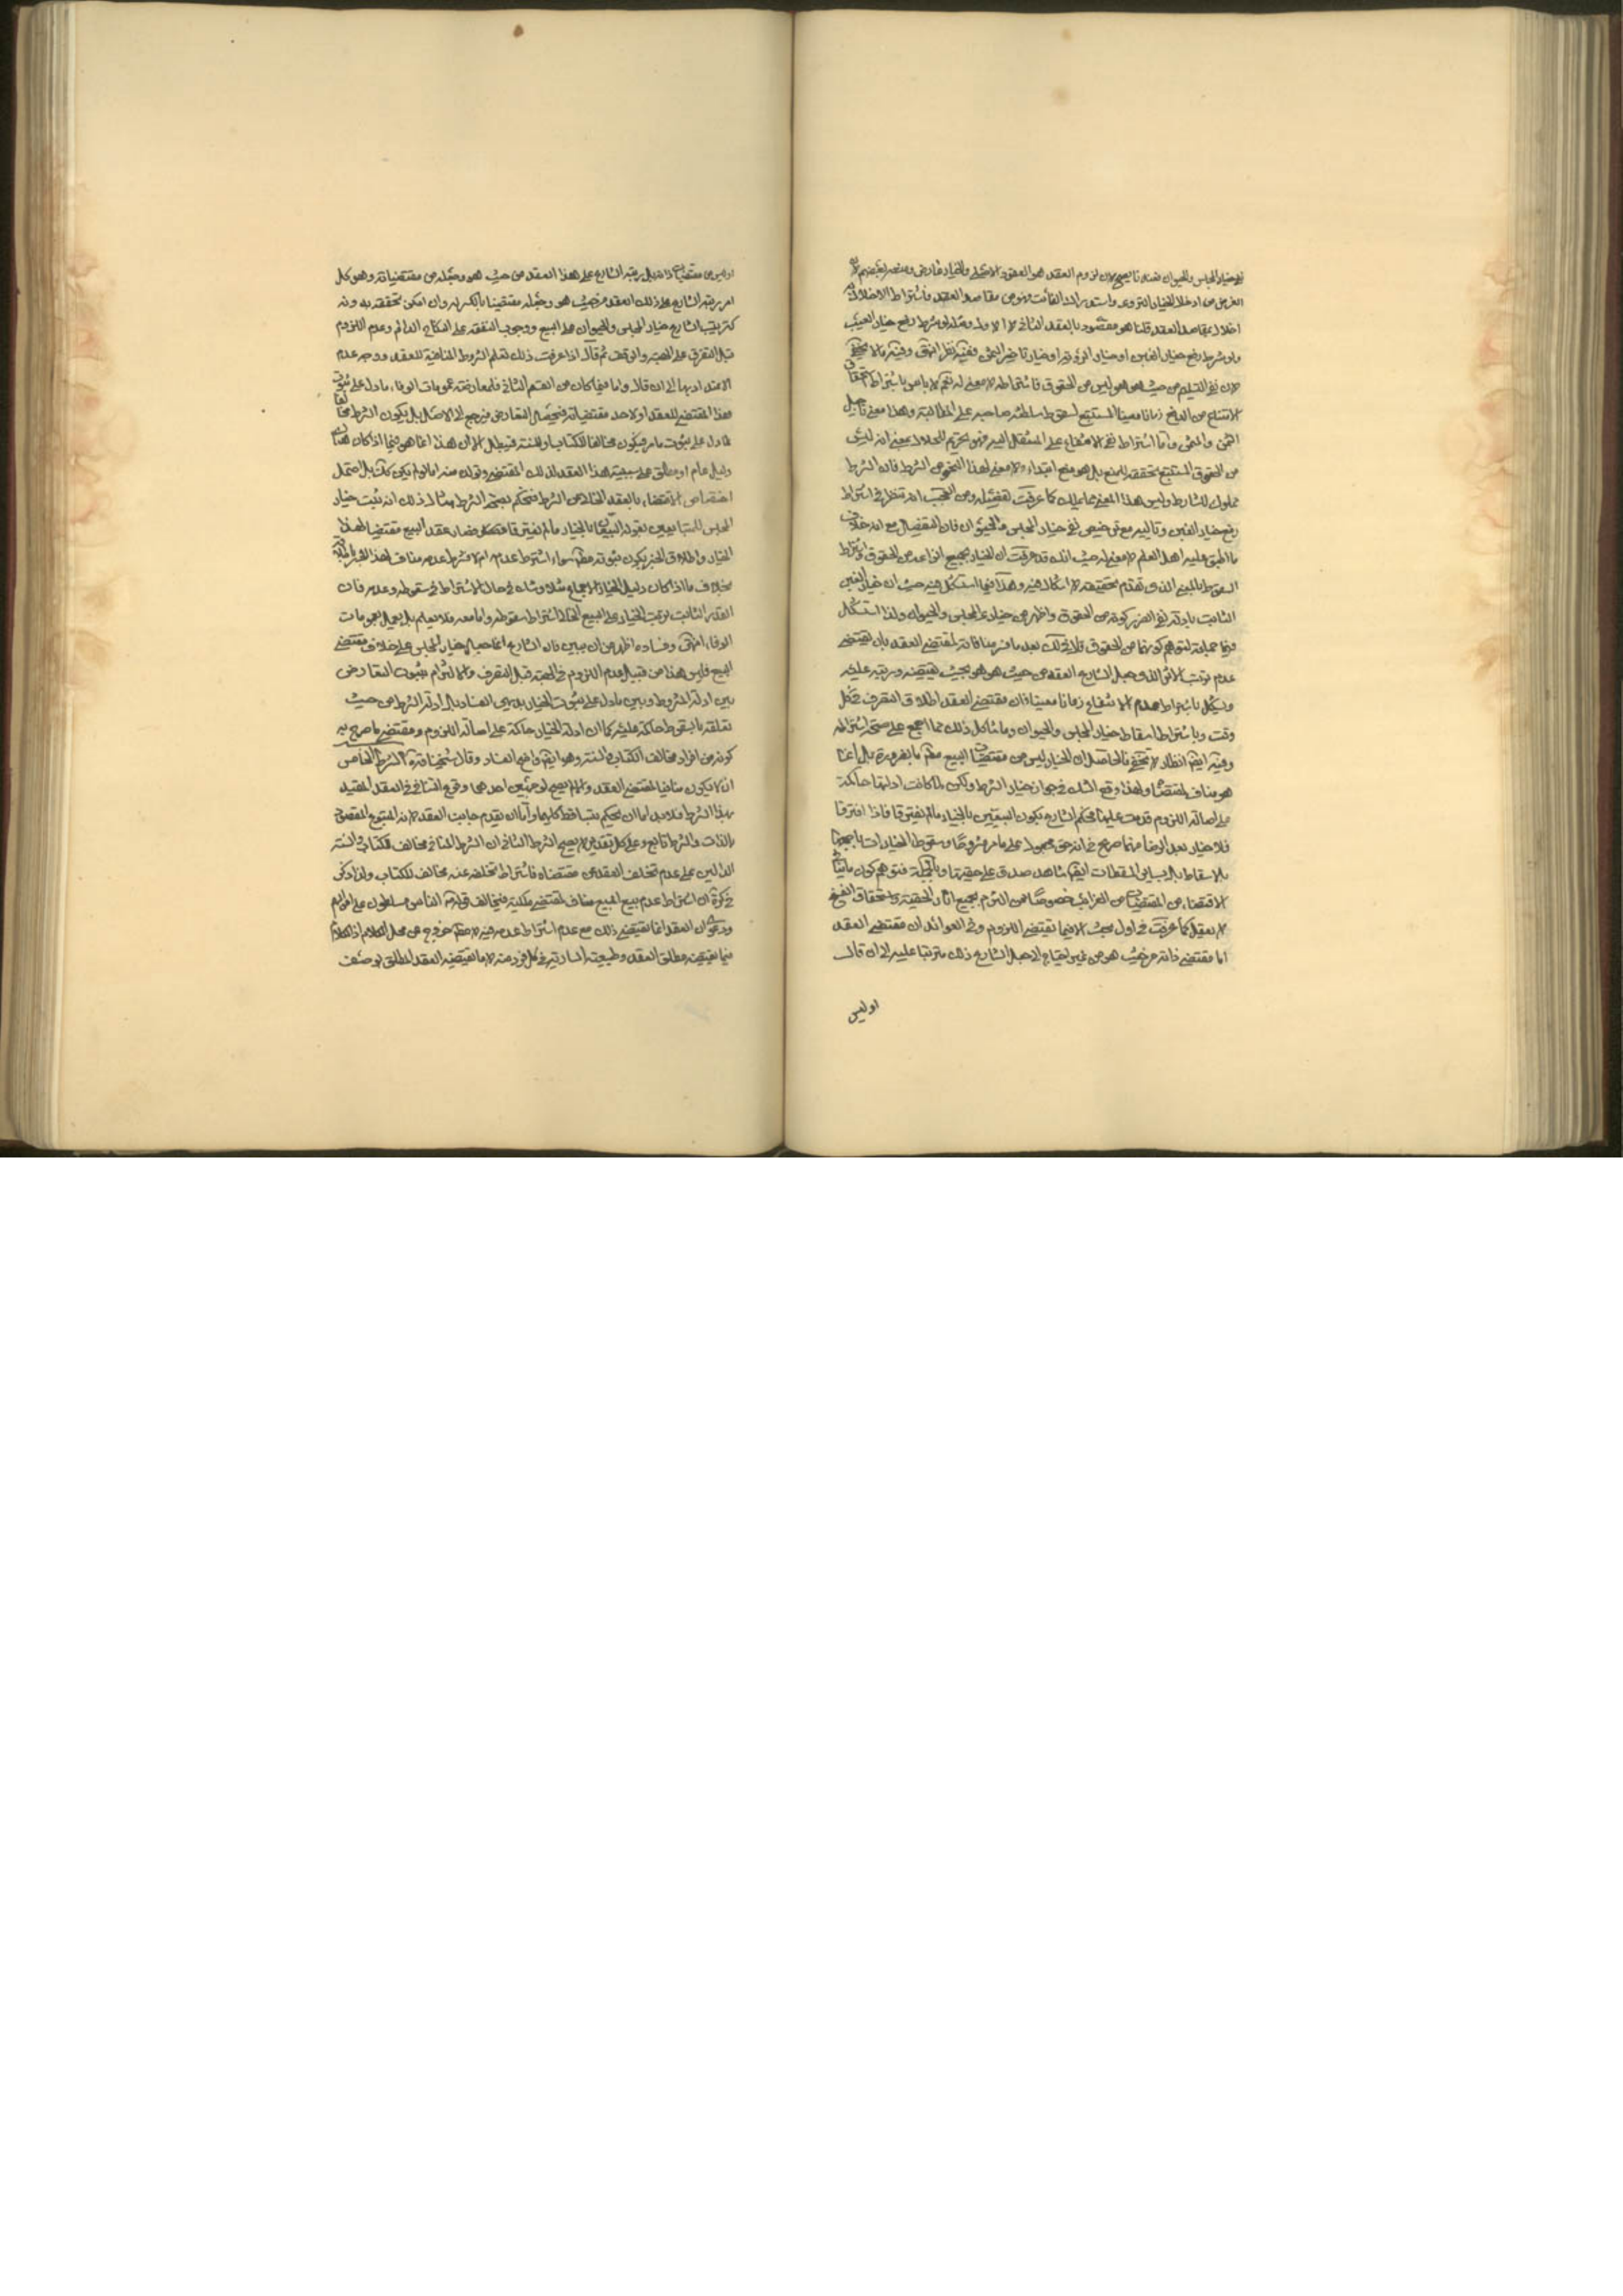 لا خيار المجلس والحيوان فساد فا يصح لان لزوم العقد هو العقود الاصلي والخيار عارض
الغرض من ادخال الخيار التروي واستدراك الفائت وهو من مقاصد العقد فاشتراط الاخلال به
اخلال بمقاصد العقد قلنا هو مقصود بالعقد الثاني لا الاول ومثله لو شرط رفع خيار العيب
ولو شرط رفع خيار الغبن او خيار الرؤية او خيار تاخير الثمن ففيه نظر انتهى وفيه ما لا يخفى
لان نفي التسليم من حيث هو هو ليس من الحقوق فاشتراطه لا معنى له نعم لا باس باشتراط استحقاق
الامتناع من الدفع زمانا معينا المستتبع لسقوط سلطنة صاحبه على المطالبة وهذا معنى تاجيل
الثمن والمثمن واما اشتراط نفي الانتفاع على المنتقل اليه فهو تحريم للحلال بمعنى انه ليس
من الحقوق المستتبع تحققه للمنع بل هو منع ابتداء ولا معنى لهذا النحو من الشرط فان الشرط
مملوك للشارط وليس هذا المعنى مما يملك كما عرفت تفصيله ومن العجب انه تنظر في اشتراط
رفع خيار الغبن وتالييه مع ترخيصه في نفي خيار المجلس والحيوان فان التفصيل مع انه خلاف
ما اطبق عليه اهل العلم لا معنى له حيث انك قد عرفت ان الخيار بجميع انواعه من الحقوق واشتراط
السقوط بالمعنى الذي تقدم تحقيقه لا اشكال فيه وهذا فيما استشكل فيه حيث ان خيار الغبن
الثابت بادلة نفي الضرر كونه من الحقوق واظهر من خيار المجلس والحيوان ولذا استشكل
فيها جماعة لتوهم كونهما من الحقوق فلا يخلك بعد ما فسر منافاته لمقتضى العقد بان يقتضي
عدم ترتب الاثر الذي جعل الشارع العقد من حيث هو هو بحيث يقتضيه ورتبه عليه
ويشكل باشتراط عدم الانتفاع زمانا معينا فان مقتضى العقد اطلاق التصرف في كل
وقت وباشتراط اسقاط خيار المجلس والحيوان وما شاكل ذلك مما اجمع على صحة اشتراطه
وفيه ايضا انظار لا تخفى فالحاصل ان الخيار ليس من مقتضيات البيع مطلقا بالضرورة بل انما
هو مناف لمقتضاه ولهذا وقع الشك في جواز خيار الشرط ولكن لما كانت ادلتها حاكمة
على اصالة اللزوم قدمت عليها فحكم الشارع بكون البيعين بالخيار ما لم يفترقا فاذا افترقا
فلا خيار بعد الرضا منهما صريح في انه حق مجعول على ما مر مشروحا وسقوط الخيارات باجمعها
بالاسقاط بل بسائر المسقطات ايضا شاهد صدق على حقيتها وبالجملة فتوهم كون ما ينافي
الاقتضاء من المقتضيات من الغرائب خصوصا من التزم بجميع اثار الحقية واستحقاق الفسخ
لا يعقل كما عرفت في اول مبحث الا فيما يقتضي اللزوم وفي العوائد ان مقتضى العقد
اما مقتضى ذاته من حيث هو من غير احتياج الى جعل الشارع ذلك مترتبا عليه الى ان قال
اوليس
اوليس من مقتضيات ذاته بل رتبه الشارع على هذا العقد من حيث هو وجعله من مقتضياته وهو كل
امر رتبه الشارع على ذلك العقد من حيث هو وجعله مقتضيا بالكسر له وان امكن تحققه بدونه
كترتيب الشارع خيار المجلس والحيوان على البيع ووجوب النفقة على النكاح الدائم وعدم اللزوم
قبل التصرف على الهبة والوقف ثم قال اذا عرفت ذلك تعلم الشروط المنافية للعقد ووجه عدم
الاعتداد بها الى ان قال واما فيما كان من القسم الثاني فلمعارضته عمومات الوفاء ما دل على ثبوت
هذا المقتضى للعقد او لاحد مقتضياته فيحصل التعارض فيرجع الى الاصل بل يكون الشرط مخالفا
لما دل على ثبوت ما مر فيكون مخالفا للكتاب والسنة فيبطل الا ان هذا انما هو فيما اذا كان هناك
دليل عام او مطلق على سببية هذا العقد لذلك المقتضى وتولده منه اما لو لم يكن كذلك بل احتمل
اختصاص الاقتضاء بالعقد الخالي من الشرط فيحكم بصحة الشرط مثال ذلك انه ثبت خيار
المجلس للمتبايعين بقوله البيعان بالخيار ما لم يفترقا فصار عقد البيع مقتضيا لهذا
الخيار واطلاق الخبر يكون ثبوته مطلقا سواء اشترط عدمه ام لا فشرط عدمه مناف لهذا الخبر
بخلاف ما اذا كان دليل الخيار الاجماع مثلا وشك في حال الاشتراط في سقوطه وعدمه فان
القدر الثابت ترتب الخيار على البيع الخالي عن اشتراط سقوطه واما معه فلا يعلم بل يعمل بعمومات
الوفاء انتهى وفساده اظهر من ان يبين فان الشارع انما جعل خيار المجلس على خلاف مقتضى
البيع فليس هذا من قبيل عدم اللزوم في الهبة قبل التصرف والالتزام بثبوت التعارض
بين ادلة الشروط وبين ما دل على ثبوت الخيار بديهي الفساد بل ادلة الشرط من حيث
تعلقه بالسقوط حاكمة عليه كما ان ادلة الخيار حاكمة على اصالة اللزوم ومقتضى ما صرح به
كونه من افراد مخالف الكتاب والسنة وهو ايضا واضح الفساد وقال شيخنا قدس سره الشرط الخامس
ان لا يكون منافيا لمقتضى العقد والا لم يصح لوجهين احدهما وقوع التنافي في العقد المقيد
بهذا الشرط فلا بد اما ان يحكم بتساقط كليهما واما ان يقدم جانب العقد لانه المتبوع المقصود
بالذات والشرط تابع وعلى كل تقدير لا يصح الشرط الثاني ان الشرط المنافي مخالف للكتاب والسنة
الدالين على عدم تخلف العقد عن مقتضاه فاشتراط تخلفه عنه مخالف للكتاب ولذا ذكر
في كرة ان اشتراط عدم بيع المبيع مناف لمقتضى ملكيته فيخالف قوله الناس مسلطون على اموالهم
ودعوى ان العقد انما يقتضي ذلك مع عدم اشتراط عدمه فيه لا مطلقا خروج عن محل الكلام اذ الكلام
فيما يقتضيه مطلق العقد وطبيعته السارية في كل فرد منه لا ما يقتضيه العقد المطلق بوصف